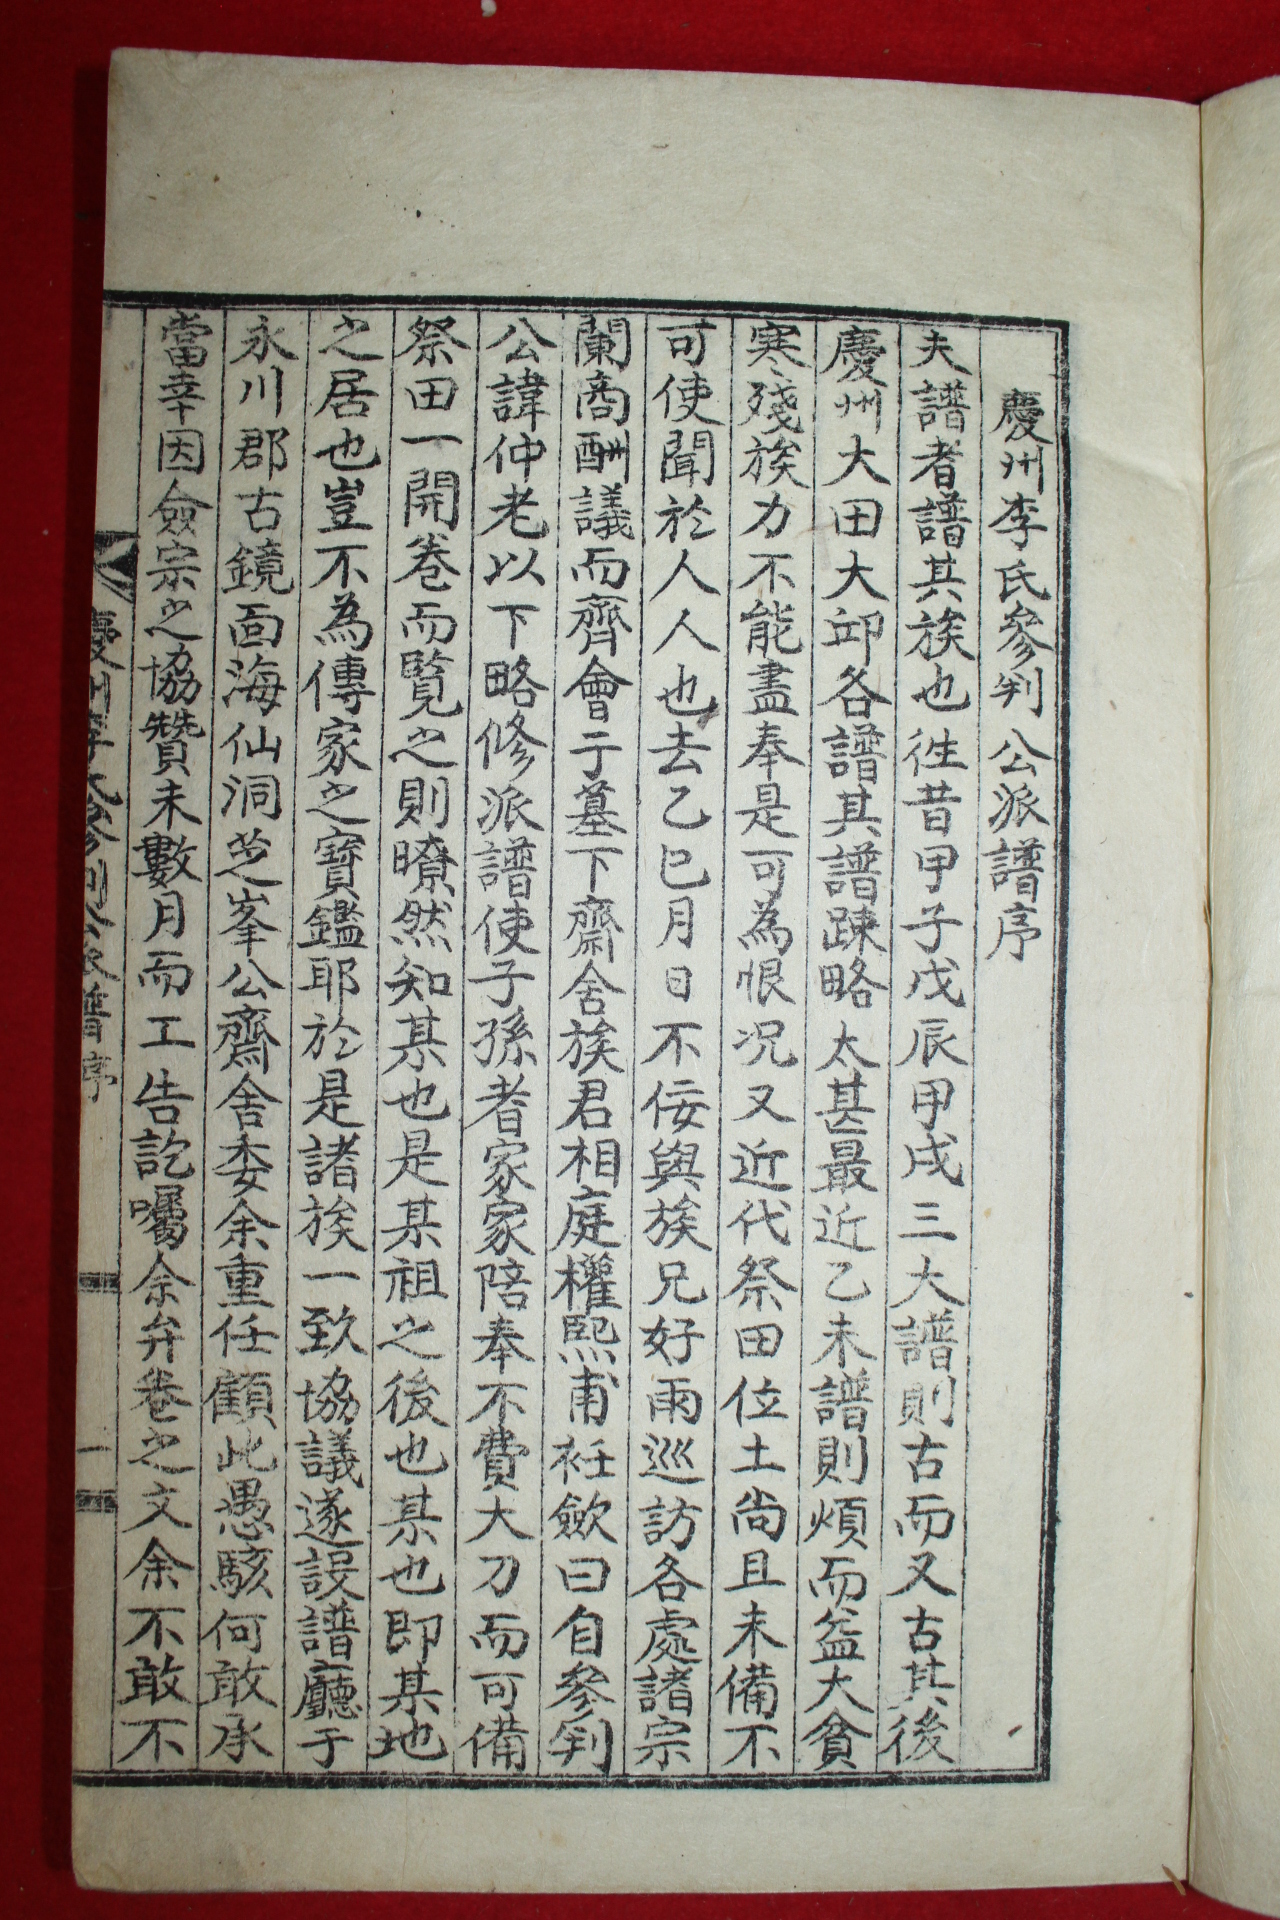 慶州李氏參判公派譜序
夫譜者譜其族也徃昔甲子戊辰甲戌三大譜則古而又古其後
慶州大田大邱各譜其譜踈略太甚最近乙未譜則煩而益大貧
寒殘族力不能盡奉是可為恨况又近代祭田位土尙且未備不
可使聞於人人也去乙巳月日不佞與族兄好雨巡訪各處諸宗
蘭商酬議而齊會于墓下齋舍族君相庭權熙甫衽歛曰自參判
公諱仲老以下略修派譜使子孫者家家陪奉不費大刀而可備
祭田一開卷而覧之則瞭然知某也是某祖之後也某也即某地
之居也豈不為傳家之寶鑑耶於是諸族一致協議遂設譜廳于
永川郡古鏡面海仙洞芝峯公齋舍委余重任顧此愚駭何敢承
當幸因僉宗之協贊未數月而工告訖囑余弁卷之文余不敢不
慶州李氏參判公派譜序 一